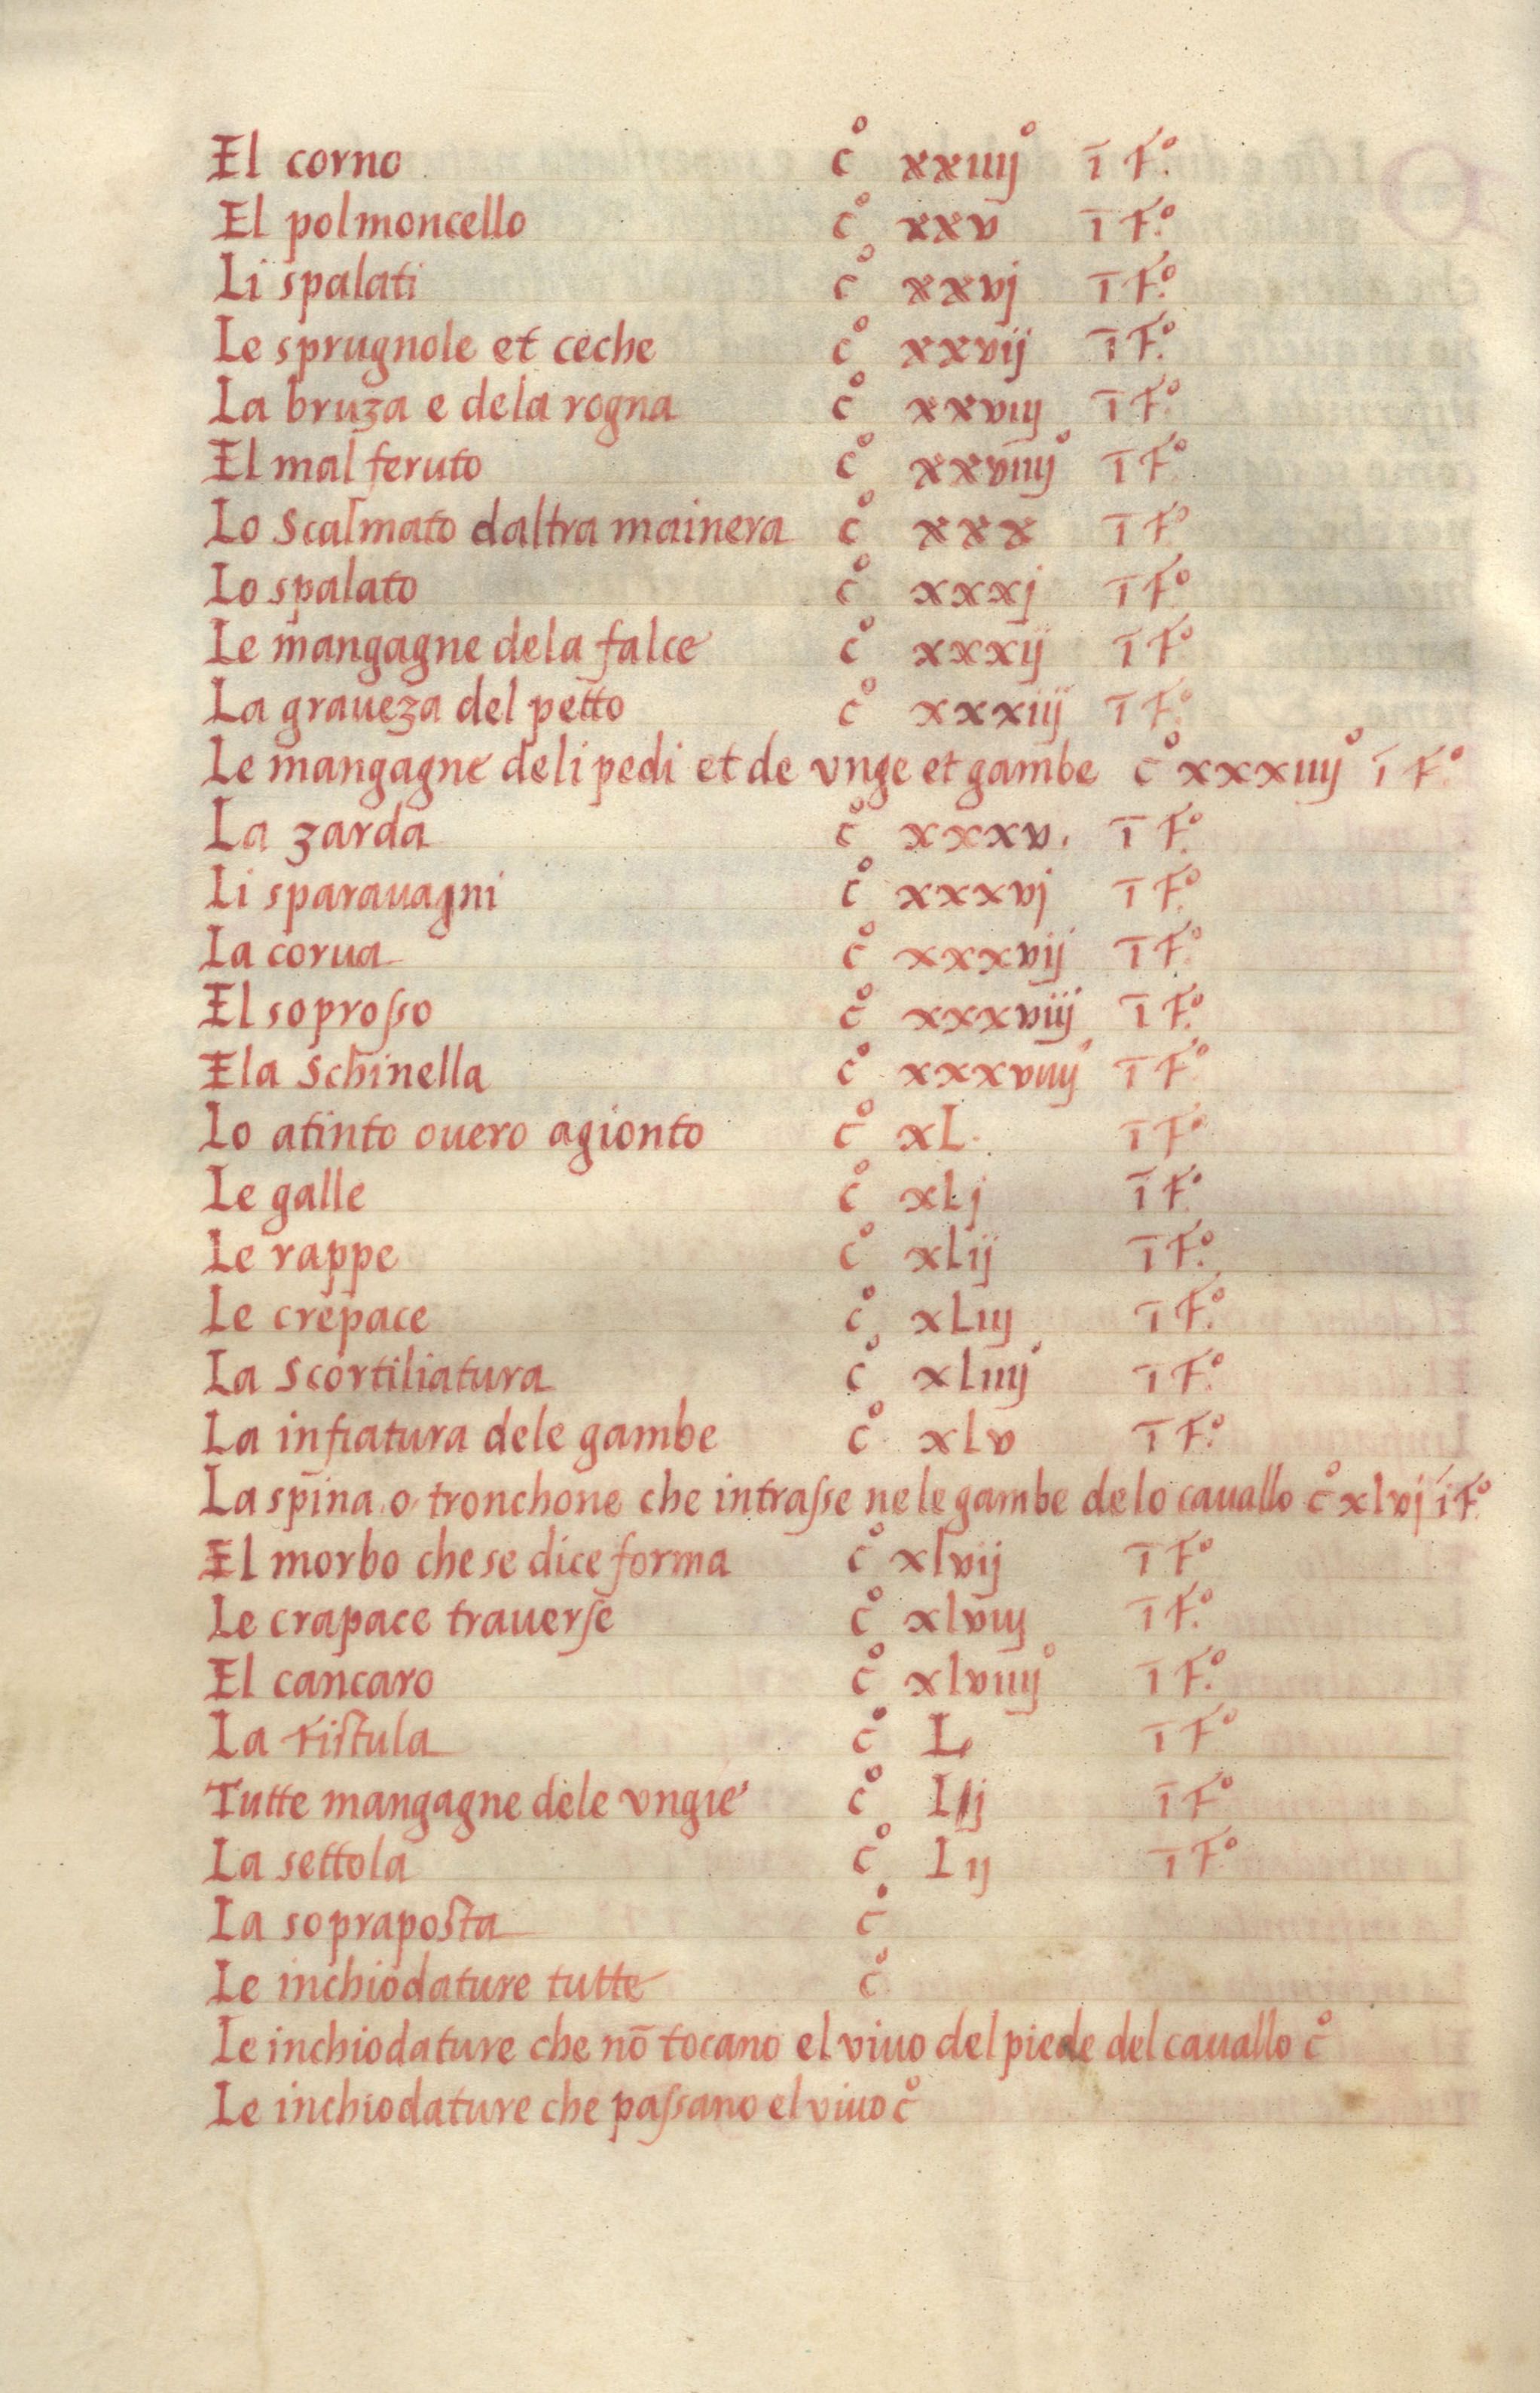 El corno c° xxiiij° ī F.°
El polmoncello c° xxv ī F.°
Li spalati c° xxvj ī F.°
Le sprugnole et ceche c° xxvij ī F.°
La bruza e dela rogna c° xxviij ī F.°
El mal feruto c° xxviiij° ī F.°
Lo scalmato daltra mainera c° xxx ī F.°
Lo spalato c° xxxj ī F.°
Le mangagne dela falce c° xxxij ī F.°
La graueza del petto c° xxxiij ī F.°
Le mangagne deli pedi et de vnge et gambe c° xxxiiij° ī F.°
La zarda c° xxxv. ī F.°
Li sparauagni c° xxxvj ī F.°
La corua c° xxxvij ī F.°
El soprosso c° xxxviij ī F.°
Ela schinella c° xxxviiij° ī F.°
Lo atinto ouero agionto c° xL. ī F.°
Le galle c° xLj ī F.°
Le rappe c° xLij ī F.°
Le crepace c° xLiij ī F.°
La scortiliatura c° xLiiij° ī F.°
La infiatura dele gambe c° xlv ī F.°
La spina o tronchone che intrasse nele gambe delo cauallo c° xlvj ī F.°
El morbo che se dice forma c° xlvij ī F.°
Le crapace trauerse c° xlviij ī F.°
El cancaro c° xlviiij° ī F.°
La Fistula c° L ī F.°
Tutte mangagne dele vngie c° Lj ī F.°
La settola c° Lij ī F.°
La sopraposta c°
Le inchiodature tutte c°
Le inchiodature che nō tocano el viuo del piede del cauallo c°
Le inchiodature che passano el viuo c°